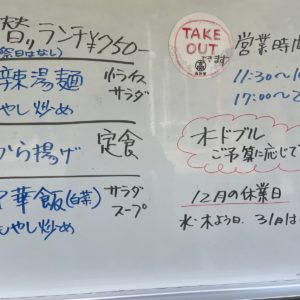 替ランチ¥750-
祭日はなし)
辣湯麺 小ライス
サラダ
やし炒め
から揚げ 定食
華飯(白菜) サラダ
スープ
やし炒め
TAKE
OUT
できます
営業時間
11:30〜1
17:00〜2
ホドブル
ご予算に応じて
12月の休業日
水・木よう日、31月は